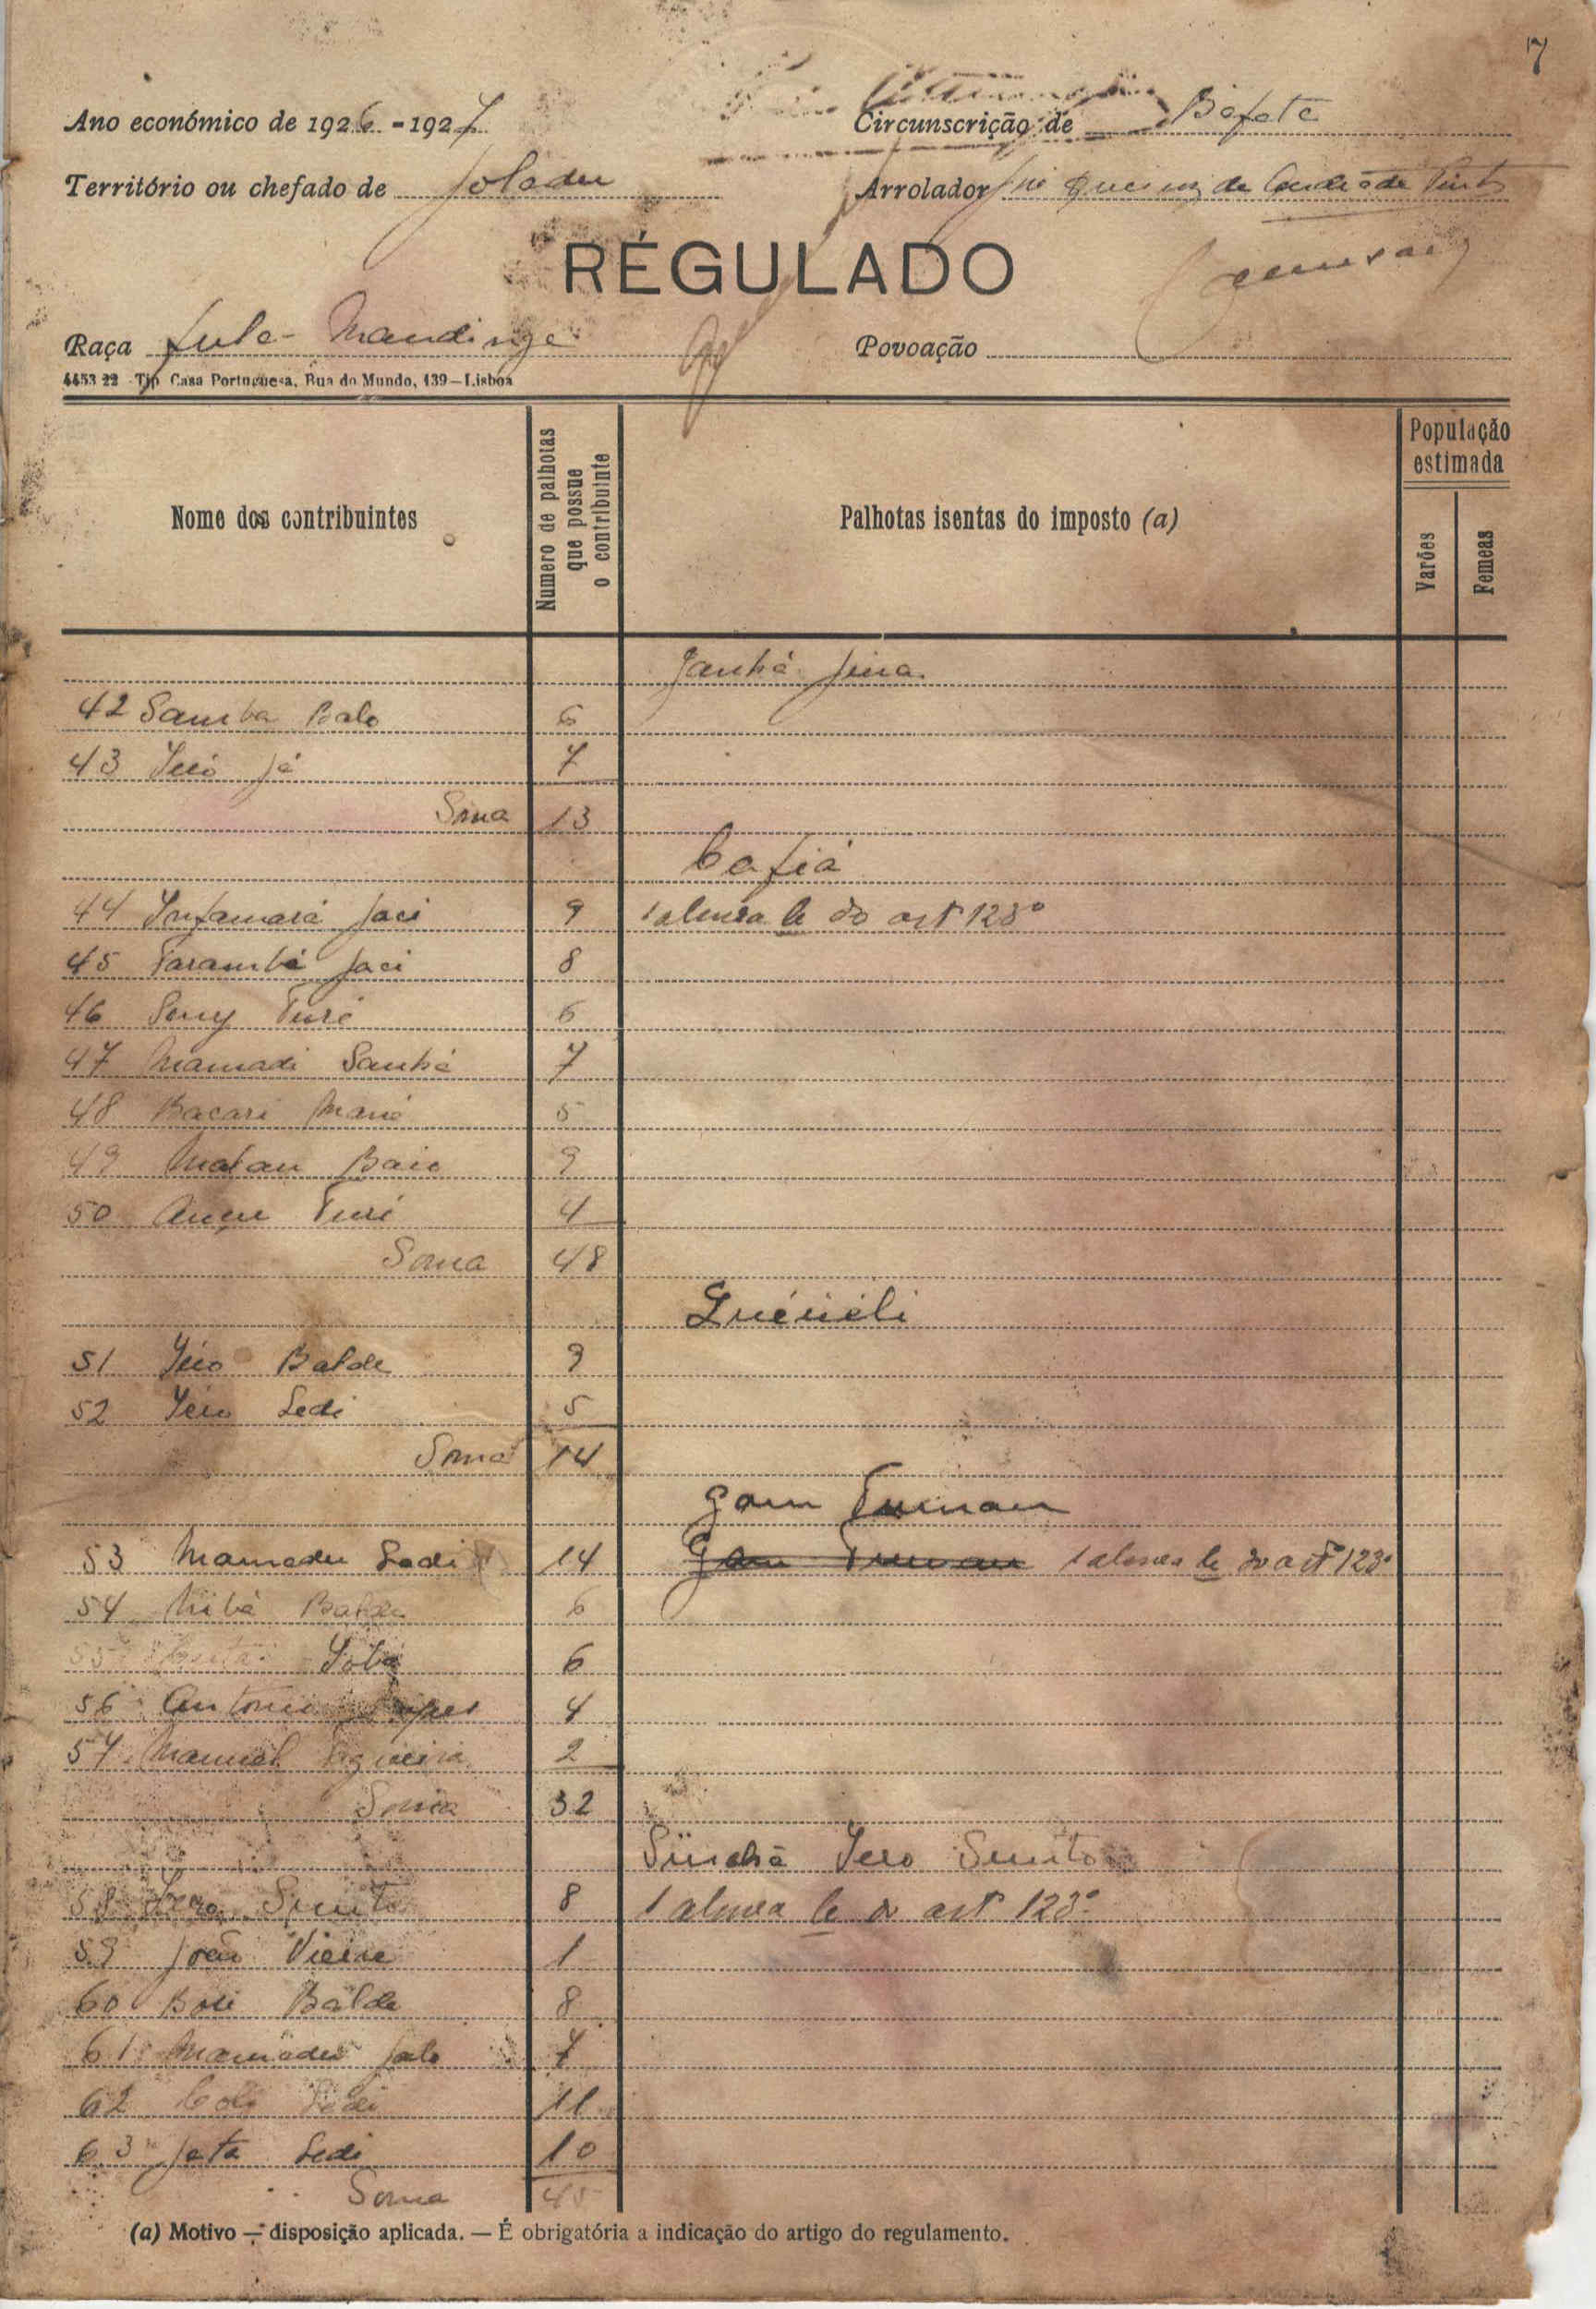 7
Ano económico de 1926-1927
Circunscrição de Bafatá
Território ou chefado de Joladu
Arrolador de Pinto
RÉGULADO
Raça Fula-Mandinga
Povoação
4453 22 - Tip. Casa Portuguesa, Rua do Mundo, 139—Lisboa
Nome dos contribuintes
Numero de palhotas que possue o contribuinte
Palhotas isentas do imposto (a)
População estimada
Varões
Femeas
42 Samba Balo 6
43 7
Soma 13
44 Infamará Jaci 9 1 alinea b do artº 123º
45 Farambá Jaci 8
46 Seny Turé 6
47 Mamadi Sanhá 7
48 Bacari Mané 5
49 Malan Baio 9
50 Turé 4
Soma 48
51 Iéro Balde 9
52 Iéro Sedi 5
Soma 14
Gam Tumam
53 Mamadu Sedi 14 Gam Tumam 1 alinea b do artº 123º
54 Balde 6
55 6
56 Antonio Lopes 4
57 Manuel 2
Soma 32
Sinchã Iero Sunito
58 Iero Sunito 8 1 alinea b do artº 123º
59 João Vieira 1
60 Balde 8
61 Mamadu Jalo 7
62 Colo Sedi 11
63 Jata Sedi 10
Soma 45
(a) Motivo — disposição aplicada. — É obrigatória a indicação do artigo do regulamento.